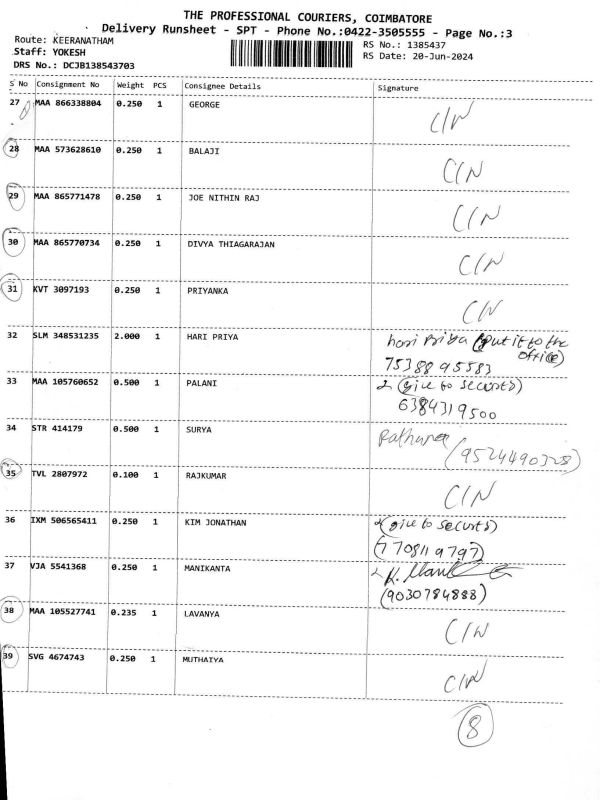 THE PROFESSIONAL COURIERS, COIMBATORE
Delivery Runsheet - SPT - Phone No.:0422-3505555 - Page No.:3
Route: KEERANATHAM
RS No.: 1385437
Staff: YOKESH
RS Date: 20-Jun-2024
DRS No.: DCJB138543703
S No Consignment No Weight PCS Consignee Details Signature
27 MAA 866338804 0.250 1 GEORGE C/N
28 MAA 573628610 0.250 1 BALAJI C/N
29 MAA 865771478 0.250 1 JOE NITHIN RAJ C/N
30 MAA 865770734 0.250 1 DIVYA THIAGARAJAN C/N
31 KVT 3097193 0.250 1 PRIYANKA C/N
32 SLM 348531235 2.000 1 HARI PRIYA hari Priya (put it to the
office)
7538895583
33 MAA 105760652 0.500 1 PALANI (give to
6384319500
34 STR 414179 0.500 1 SURYA
(9524490328)
35 TVL 2807972 0.100 1 RAJKUMAR C/N
36 IXM 506565411 0.250 1 KIM JONATHAN (give to
(7708119797)
37 VJA 5541368 0.250 1 MANIKANTA
(9030784888)
38 MAA 105527741 0.235 1 LAVANYA C/N
39 SVG 4674743 0.250 1 MUTHAIYA C/N
8